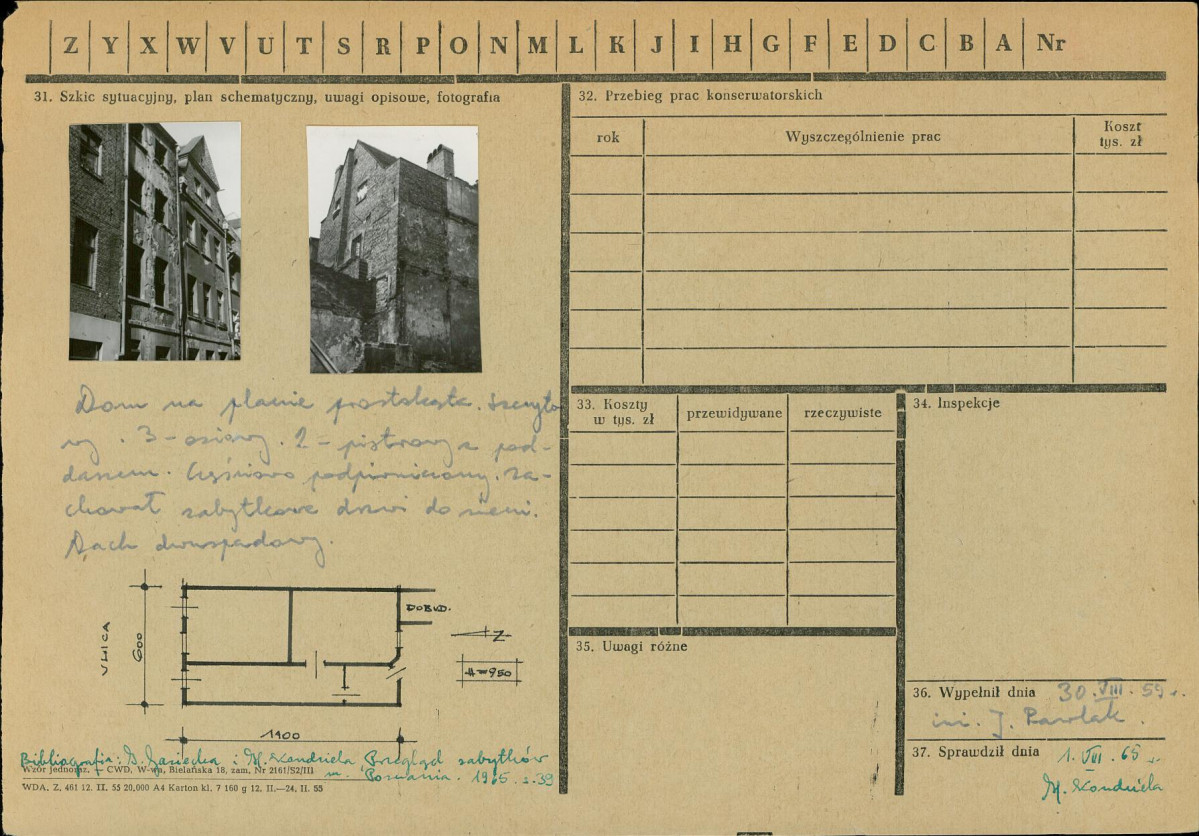 Z Y X W V U T S R P O N M L K J I H G F E D C B A Nr
31. Szkic sytuacyjny, plan schematyczny, uwagi opisowe, fotografia
Dom na planie prostokąta. Szczyto
wy. 3-osiowy. 2-piętrowy z pod-
daszem. Częściowo podpiwniczony. Za-
chował zabytkowe drzwi do sieni.
Dach dwuspadowy.
ULICA
600
DOBUD.
Z
H=950
1900
Bibliografia: G. Gasiecka i M. Kondziela Przegląd zabytków
m. Poznania. 1965. s. 39
Wzór jednoraz. — CWD, W-wa, Bielańska 18, zam, Nr 2161/S2/III
WDA. Z. 461 12. II. 55 20,000 A4 Karton kl. 7 160 g 12. II.—24. II. 55
32. Przebieg prac konserwatorskich
rok
Wyszczególnienie prac
Koszt
tys. zł
33. Koszty
w tys. zł
przewidywane
rzeczywiste
34. Inspekcje
35. Uwagi różne
36. Wypełnił dnia 30. VIII. 59 r.
inż. J. Pawlak.
37. Sprawdził dnia 1. VII. 65 r.
M. Kondziela